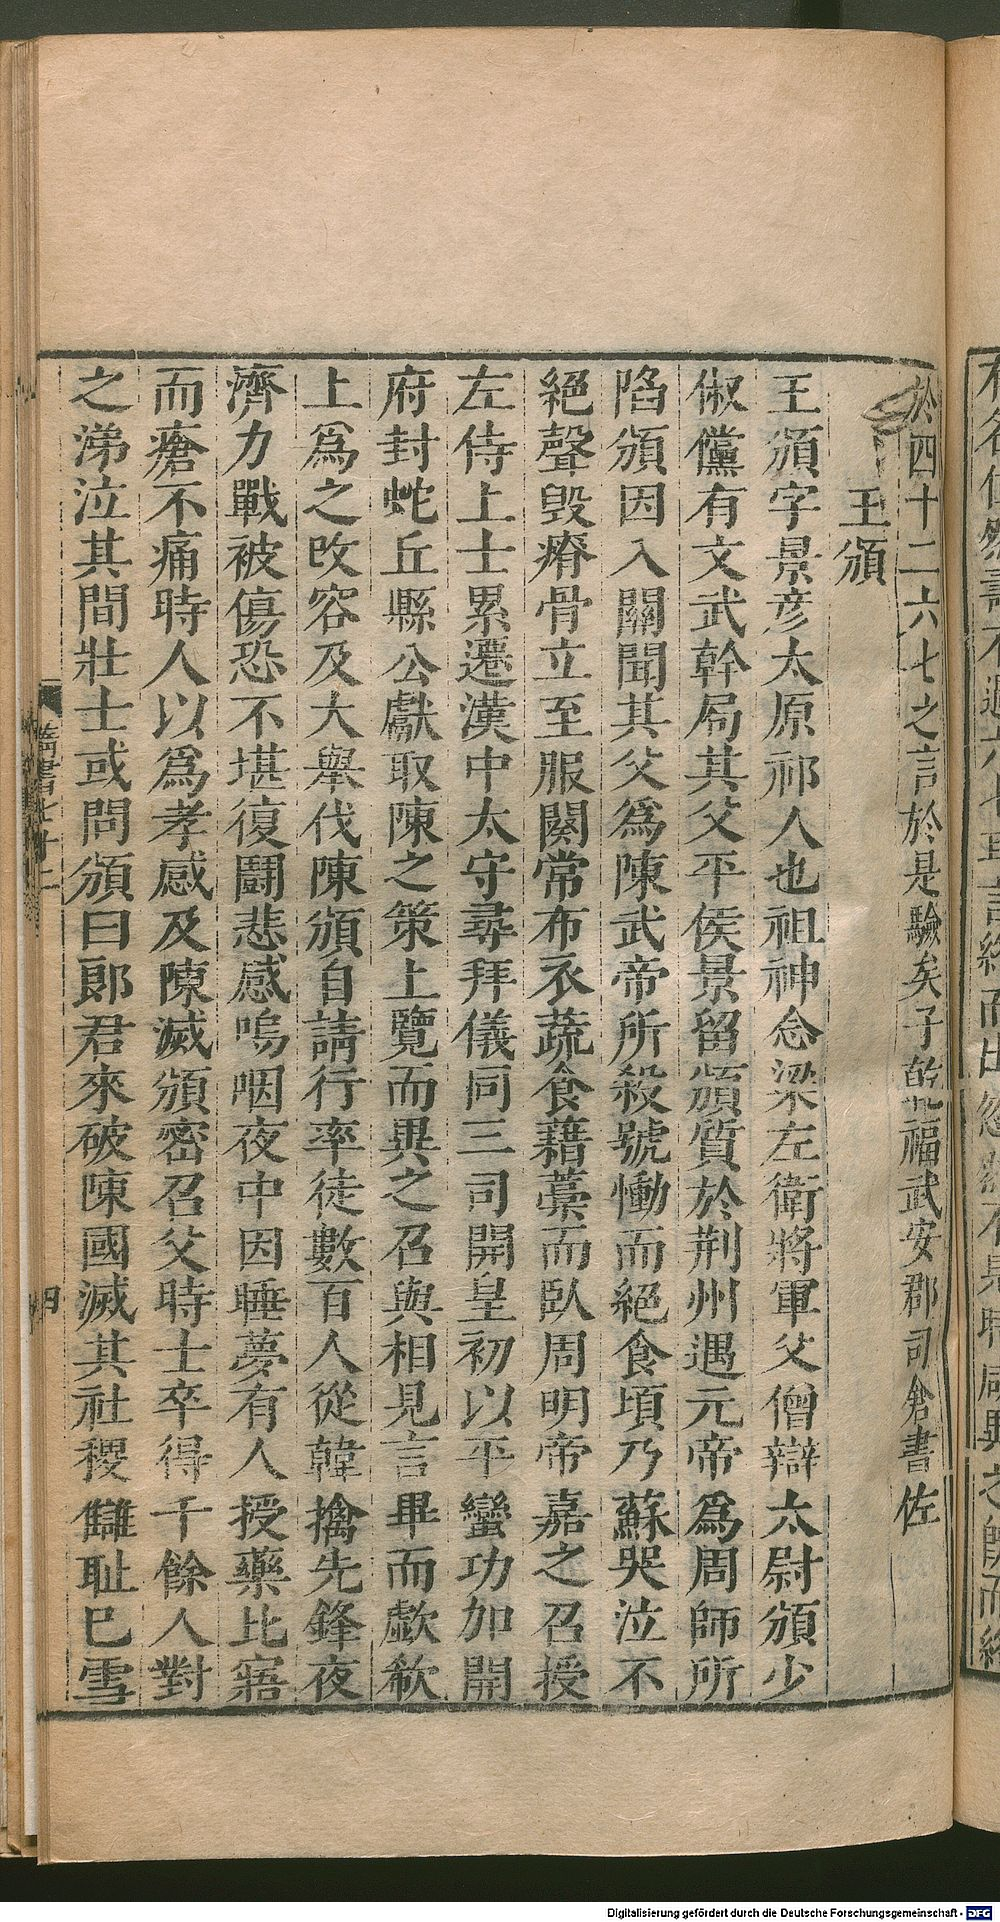 於四十二六七之言於是驗矣子乾福武安郡司倉書佐
王頒
王頒字景彦太原祁人也祖神念梁左衛將軍父僧辯太尉頒少
俶儻有文武幹局其父平侯景留頒質於荆州遇元帝爲周師所
陷頒因入關聞其父爲陳武帝所殺號慟而絕食頃乃蘇哭泣不
絕聲毁瘠骨立至服闋常布衣蔬食藉藁而臥周明帝嘉之召授
左侍上士累遷漢中太守尋拜儀同三司開皇初以平蠻功加開
府封蛇丘縣公獻取陳之策上覽而異之召與相見言畢而歔欷
上爲之改容及大舉伐陳頒自請行率徒數百人從韓擒先鋒夜
濟力戰被傷恐不堪復鬪悲感嗚咽夜中因睡夢有人授藥比寤
而瘡不痛時人以爲孝感及陳滅頒密召父時士卒得千餘人對
之涕泣其間壯士或問頒曰郎君來破陳國滅其社稷讎耻巳雪
隋書七十二
四
Digitalisierung gefördert durch die Deutsche Forschungsgemeinschaft - DFG